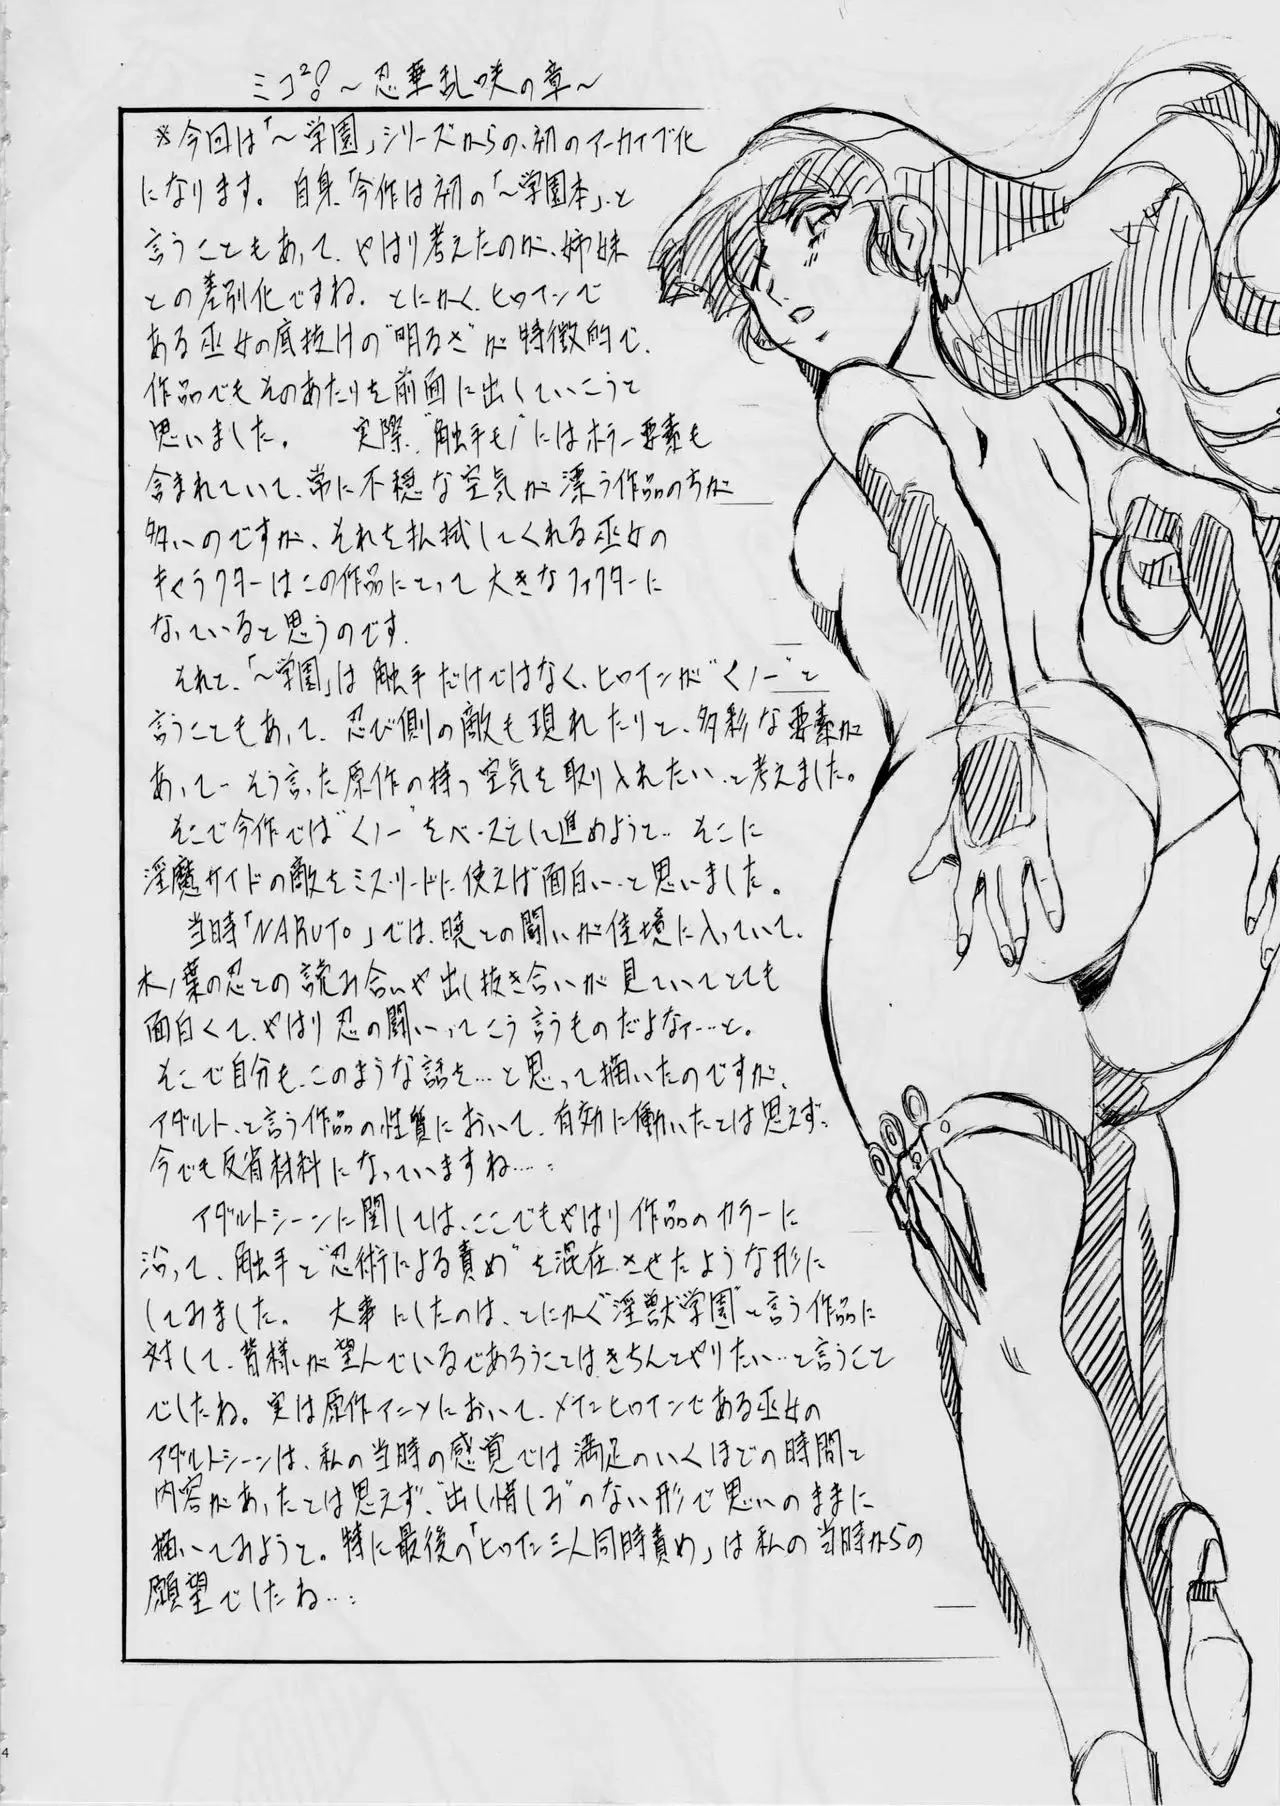 ミコ²!〜忍華乱咲の章〜
※今回は「〜学園」シリーズからの、初のアーカイブ化
になります。自身「今作は初の「〜学園本」、と
言うこともあって、やはり考えたのが、姉妹
との差別化ですね。とにかく、ヒロインで
ある巫女の底抜けの"明るさ"が特徴的で、
作品でもそのあたりを前面に出していこうと
思いました。 実際、"触手モノ"にはホラー要素も
含まれていて、常に不穏な空気が漂う作品の方が
多いのですが、それを払拭してくれる巫女の
キャラクターはこの作品にとって大きなファクターに
なっていると思うのです.
それと、「〜学園」は触手だけではなく、ヒロインが"くノ一"と
言うこともあって、忍び側の敵も現れたりと、多彩な要素が
あって…そう言った原作の持つ空気を取り入れたい…と考えました。
そこで今作では"くノ一"をベースとして進めようと…そこに
淫魔サイドの敵をミスリードに使えば面白い…と思いました。
当時「NARUTO」では、暁との闘いが佳境に入っていて、
木ノ葉の忍との読み合いや出し抜き合いが見ていてとても
面白くて、やはり忍の闘いってこう言うものだよなァ…と。
そこで自分も、このような話を…と思って描いたのですが、
アダルト、と言う作品の性質において、有効に働いたとは思えず、
今でも反省材料になっていますね…:
アダルトシーンに関しては、ここでもやはり作品のカラーに
沿って、触手と"忍術による責め"を混在させたような形に
してみました。 大事にしたのは、とにかく"淫獣学園"と言う作品に
対して、皆様が望んでいるであろうことはきちんとやりたい…と言うこと
でしたね。実は原作アニメにおいて、メインヒロインである巫女の
アダルトシーンは、私の当時の感覚では満足のいくほどの時間と
内容があったとは思えず、"出し惜しみ"のない形で思いのままに
描いてみようと。特に最後の「ヒロイン三人同時責め」は私の当時からの
願望でしたね…:
4